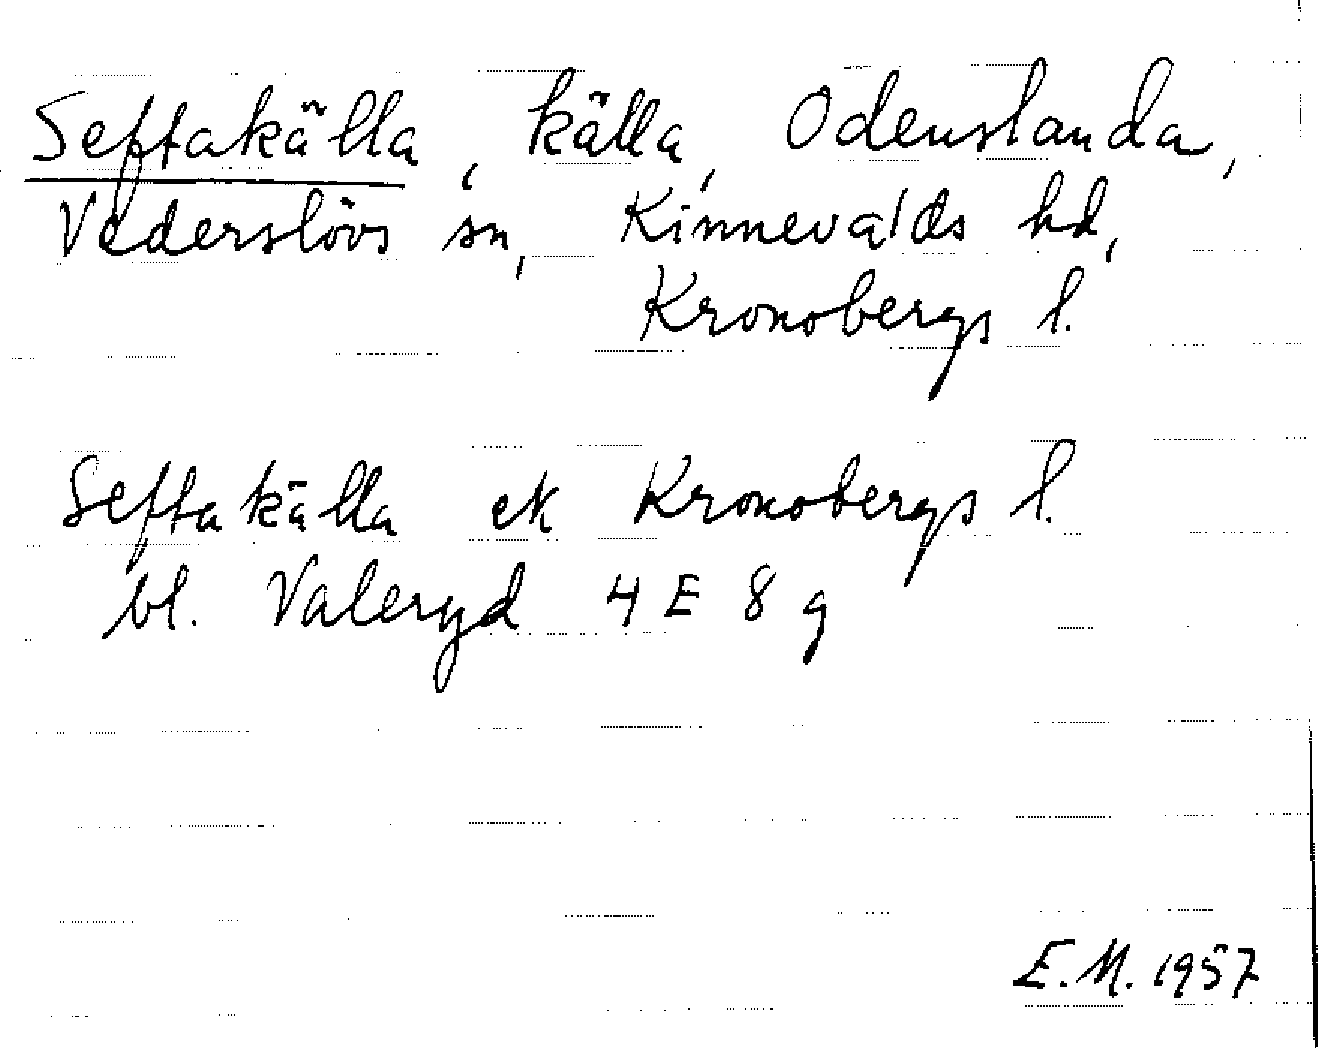 Seftakälla, källa, Odenslanda,
Vederslövs sn, Kinnevalds hd,
Kronobergs l.
Seftakälla ek Kronobergs l.
bl. Valeryd 4 E 8 g
E.M. 1957